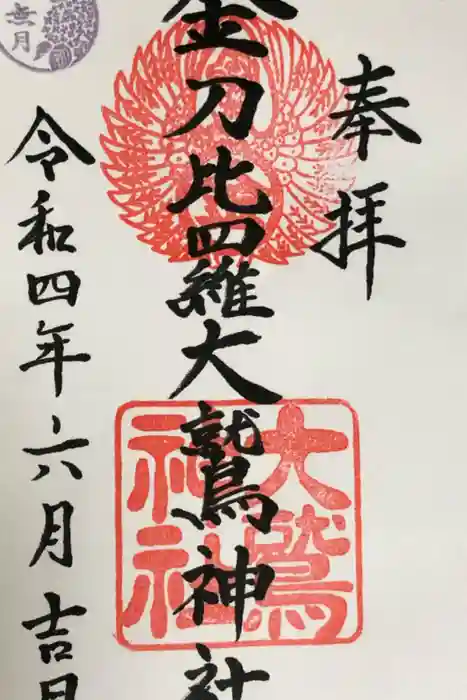 奉拝
金刀比羅大鷲神社
大鷲
神社
令和四年六月吉日
無月